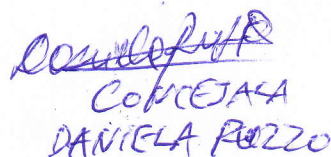 CONCEJALA
DANIELA POZZO